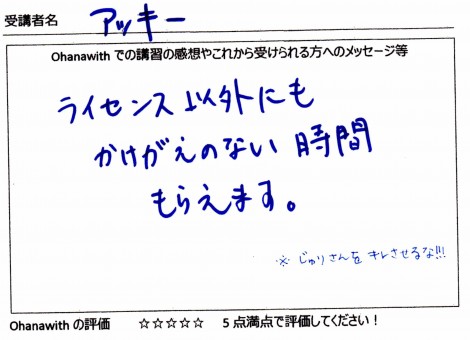 受講者名 アッキー
Ohanawith での講習の感想やこれから受けられる方へのメッセージ等
ライセンス以外にも
かけがえのない時間
もらえます。
※じゅりさんをキレさせるな!!!
Ohanawith の評価 ☆☆☆☆☆ 5点満点で評価してください！